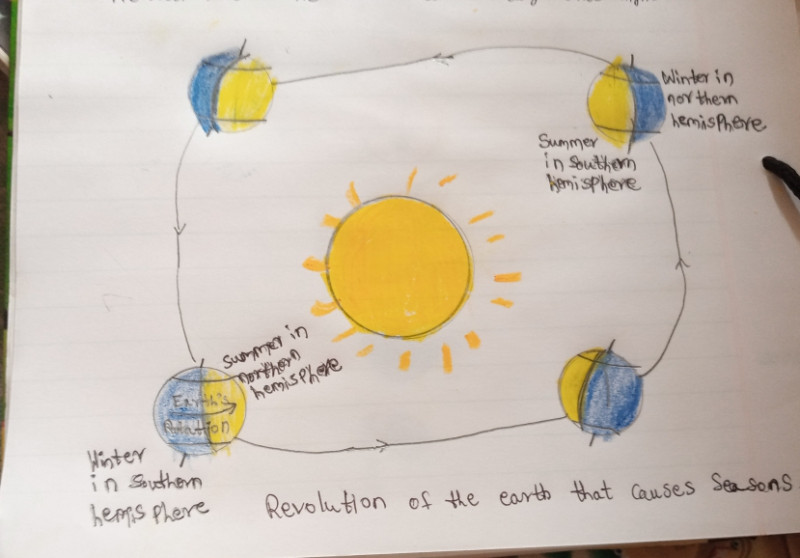 Winter in
northern
hemisphere
Summer
in Southern
hemisphere
Summer in
northern
hemisphere
Earth's
Rotation
Winter
in Southern
hemisphere
Revolution of the earth that causes Seasons